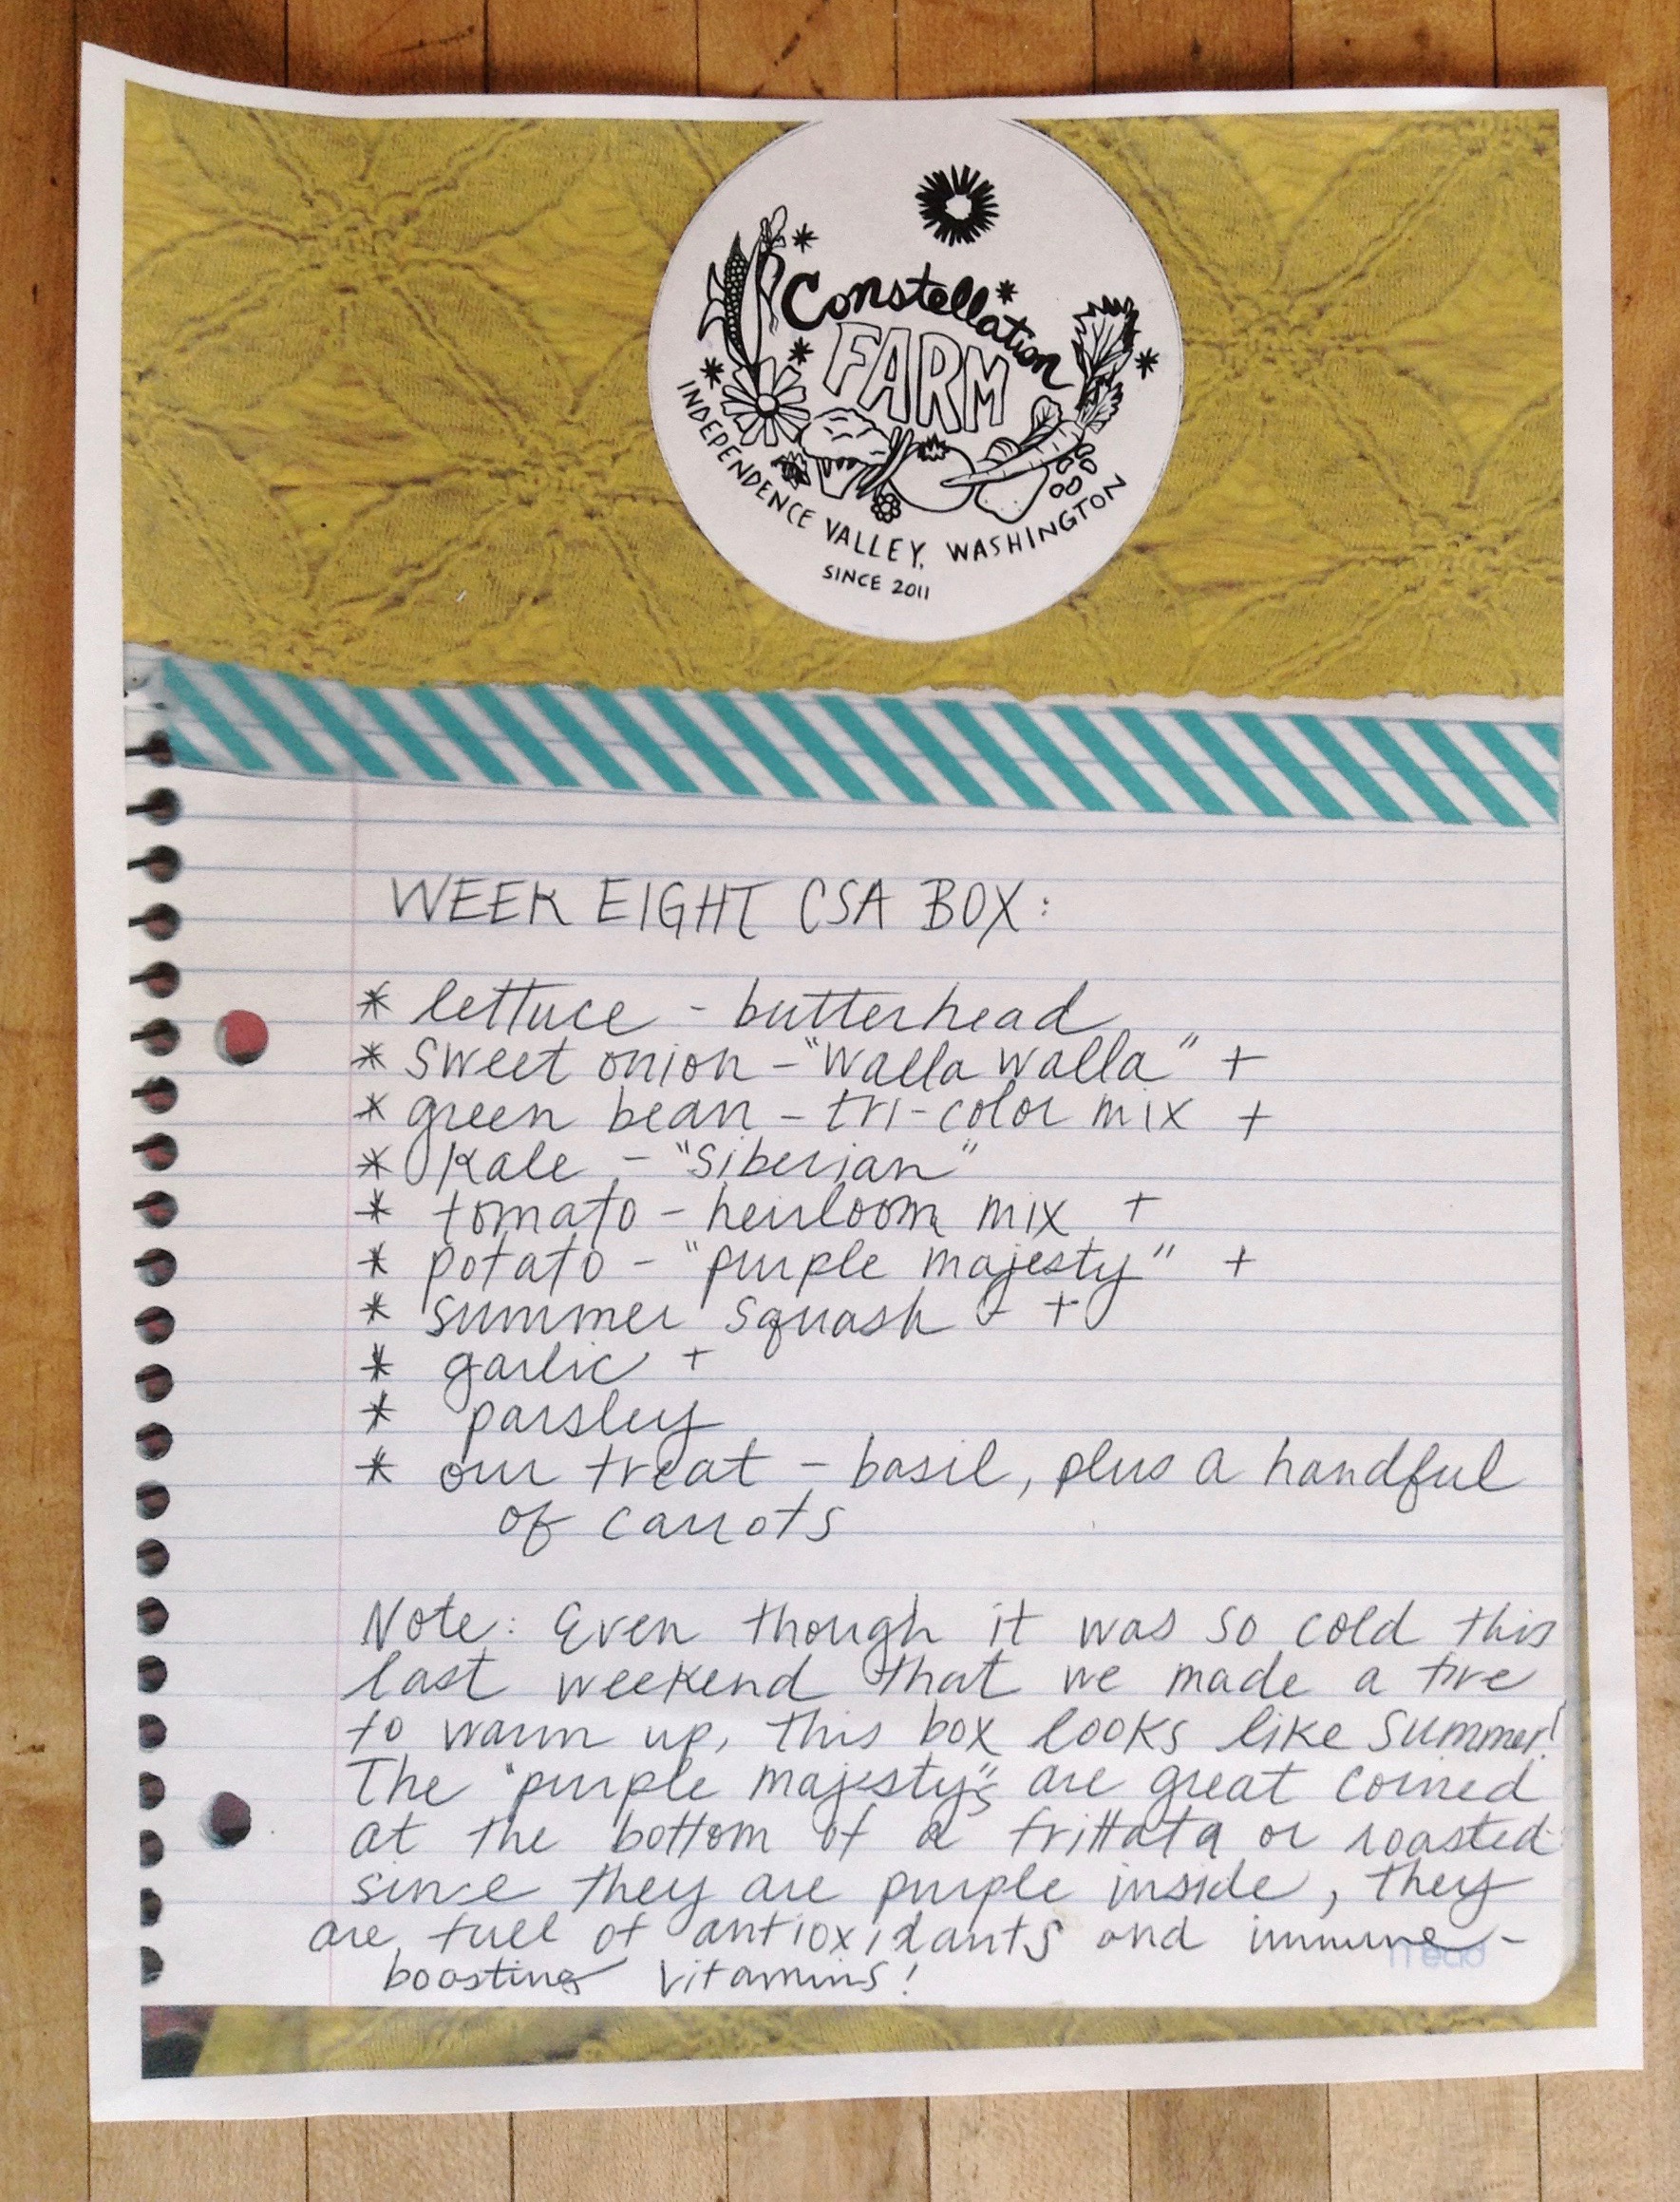 Constellation
FARM
INDEPENDENCE VALLEY, WASHINGTON
SINCE 2011
WEEK EIGHT CSA BOX:
* lettuce - butterhead
* sweet onion - "walla walla" +
* green bean - tri-color mix +
* kale - "siberian"
* tomato - heirloom mix +
* potato - "purple majesty" +
* summer squash - +
* garlic +
* parsley
* our treat - basil, plus a handful
of carrots
Note: Even though it was so cold this
last weekend that we made a fire
to warm up, this box looks like summer!
The "purple majesty"s are great coined
at the bottom of a frittata or roasted
since they are purple inside, they
are full of antioxidants and immune-
boosting vitamins!
mead